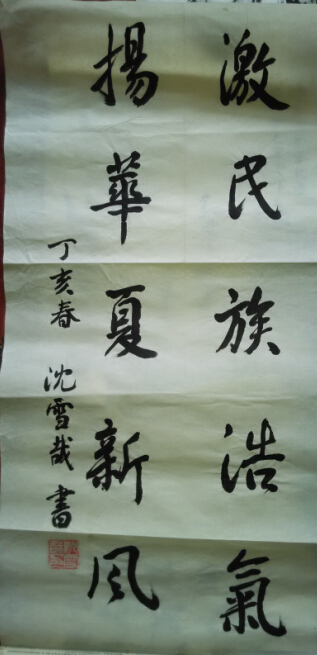 激民族浩氣
揚華夏新风
丁亥春 沈雪哉書